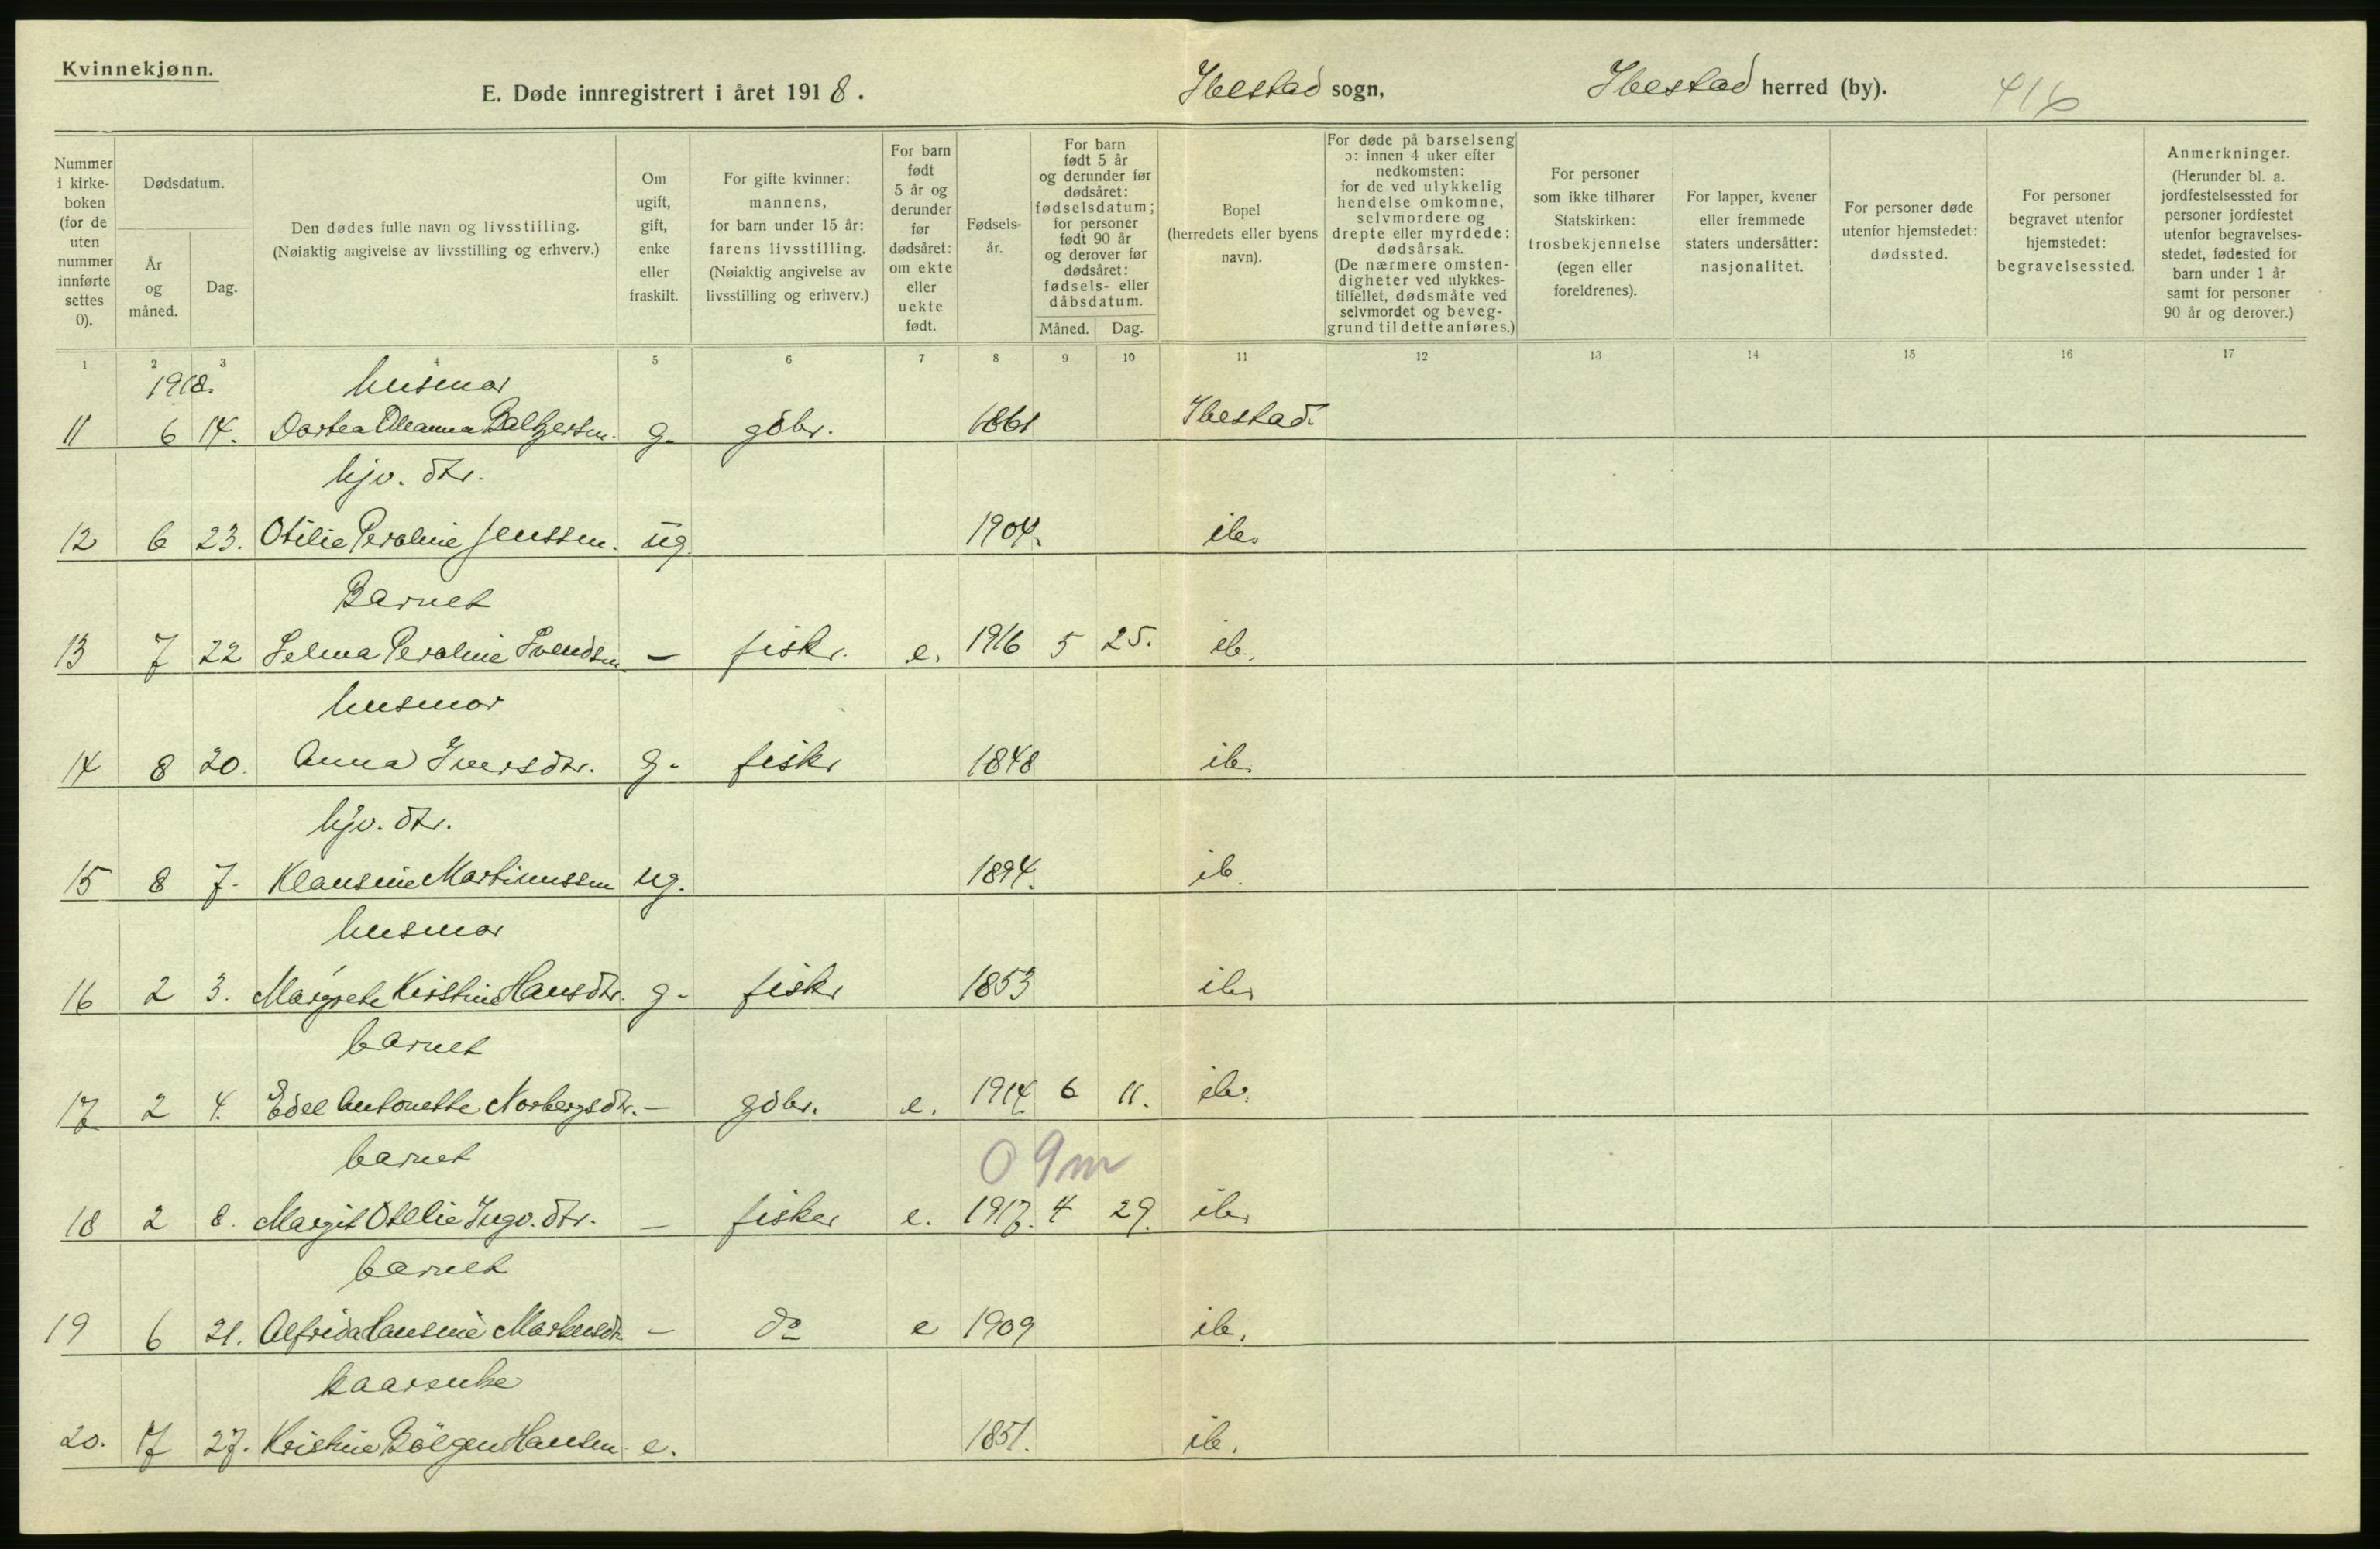 Kvinnekjønn.
E. Døde innregistrert i året 1918.
Ibestad sogn,
Ibestad herred (by).
416
Nummer i kirke-boken (for de uten nummer innførte settes 0).
Dødsdatum.
År og måned.
Dag.
Den dødes fulle navn og livsstilling.
(Nøiaktig angivelse av livsstilling og erhverv.)
Om ugift, gift, enke eller fraskilt.
For gifte kvinner: mannens, for barn under 15 år: farens livsstilling.
(Nøiaktig angivelse av livsstilling og erhverv.)
For barn født 5 år og derunder før dødsåret: om ekte eller uekte født.
Fødsels-år.
For barn født 5 år og derunder før dødsåret: fødselsdatum; for personer født 90 år og derover før dødsåret: fødsels- eller dåbsdatum.
Måned.
Dag.
Bopel (herredets eller byens navn).
For døde på barselseng ɔ: innen 4 uker efter nedkomsten: for de ved ulykkelig hendelse omkomne, selvmordere og drepte eller myrdede: dødsårsak.
(De nærmere omsten-digheter ved ulykkes-tilfellet, dødsmåte ved selvmordet og beveg-grund til dette anføres.)
For personer som ikke tilhører Statskirken: trosbekjennelse (egen eller foreldrenes).
For lapper, kvener eller fremmede staters undersåtter: nasjonalitet.
For personer døde utenfor hjemstedet: dødssted.
For personer begravet utenfor hjemstedet: begravelsessted.
Anmerkninger.
(Herunder bl. a. jordfestelsessted for personer jordfestet utenfor begravelses-stedet, fødested for barn under 1 år samt for personer 90 år og derover.)
1 2 3 4 5 6 7 8 9 10 11 12 13 14 15 16 17
1918. husmor
11 6 14. Dortea Baltzersen. g. gdbr. 1861 Ibestad.
hjv. dtr.
12 6 23. Otilie Peroline Jenssen. ug 1904. ib.
Barnet
13 7 22 Selma Peroline Svendsen. — fiskr. e. 1916 5 25. ib.
husmor
14 8 20. Anna Iversdtr. g. fiskr 1848 ib.
hjv. dtr.
15 8 7. Klausine Martinussen ug. 1894. ib.
husmor
16 2 3. Margrete Kirstine Hansdtr. g. fiskr 1853 ib.
barnet
17 2 4. Edel Antonette Norbergsdtr. — gdbr. e. 1914. 6 11. ib.
barnet 0 9m
18 2 8. Margit Otellie Ingv. dtr. — fisker e. 1917. 4 29. ib.
barnet
19 6 21. Alfrida Hansine Martensdtr — do e 1909 ib.
kaarenke
20. 7 27. Kristine Bölgen Hansen e. 1851. ib.